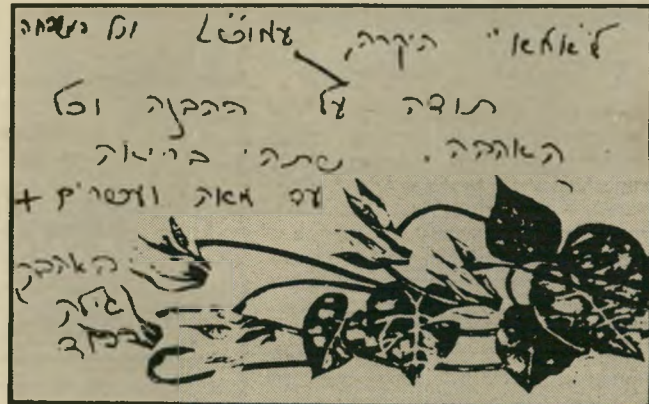 ל"אמא" היקרה, וכל המשפחה
תודה על ההבנה וכל
האהבה. שתהי בריאה
עד מאה ועשרים +
האהבה
גילה